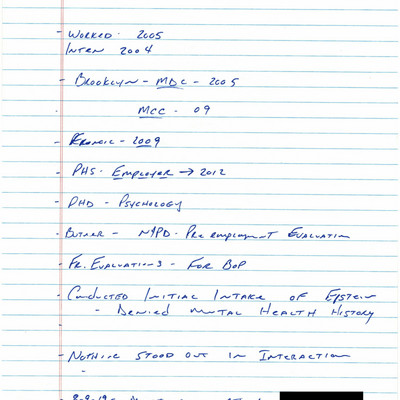 - Worked: 2005
Intern 2004
- Brooklyn - MDC - 2005
MCC - 09
- 2009
- PHS - Employer → 2012
- PHD - Psychology
- Butner - NYPD - Pre employment Evaluation
- Fr. Evaluations - For BoP
- Conducted Initial Intake of Epstein
- Denied Mental Health History
-
- Nothing stood out in Interaction
-